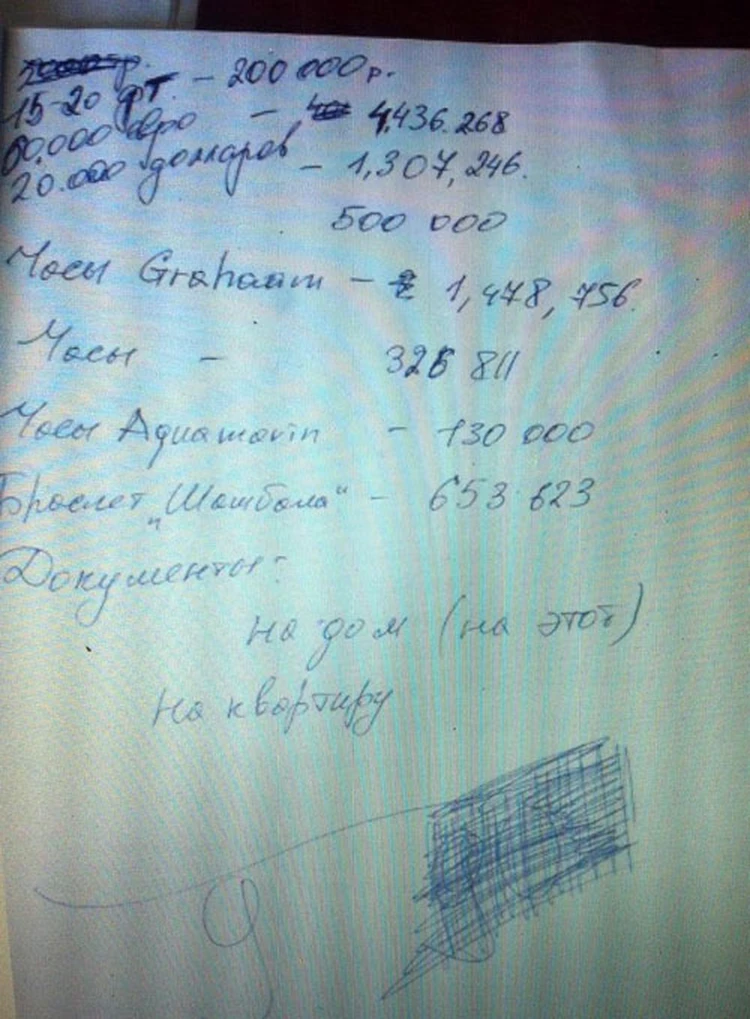 15-20 фт. - 200 000 р.
60.000 евро - 4,436.268
20.000 долларов - 1,307,246.
500 000
Часы Grahaam - 1,478,756.
Часы - 326 811
Часы Aquamarin - 130 000
Браслет „Шамбала“ - 653 623
Документы:
на дом (на этот)
на квартиру